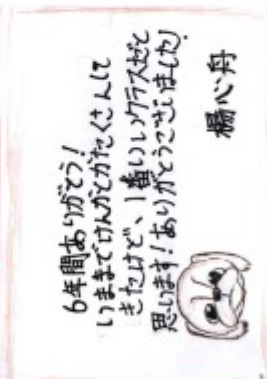 6年間ありがとう!
いままでけんかとかたくさんして
きたけど、1番いいクラスだと
思います!ありがとうございました!
楊心舟